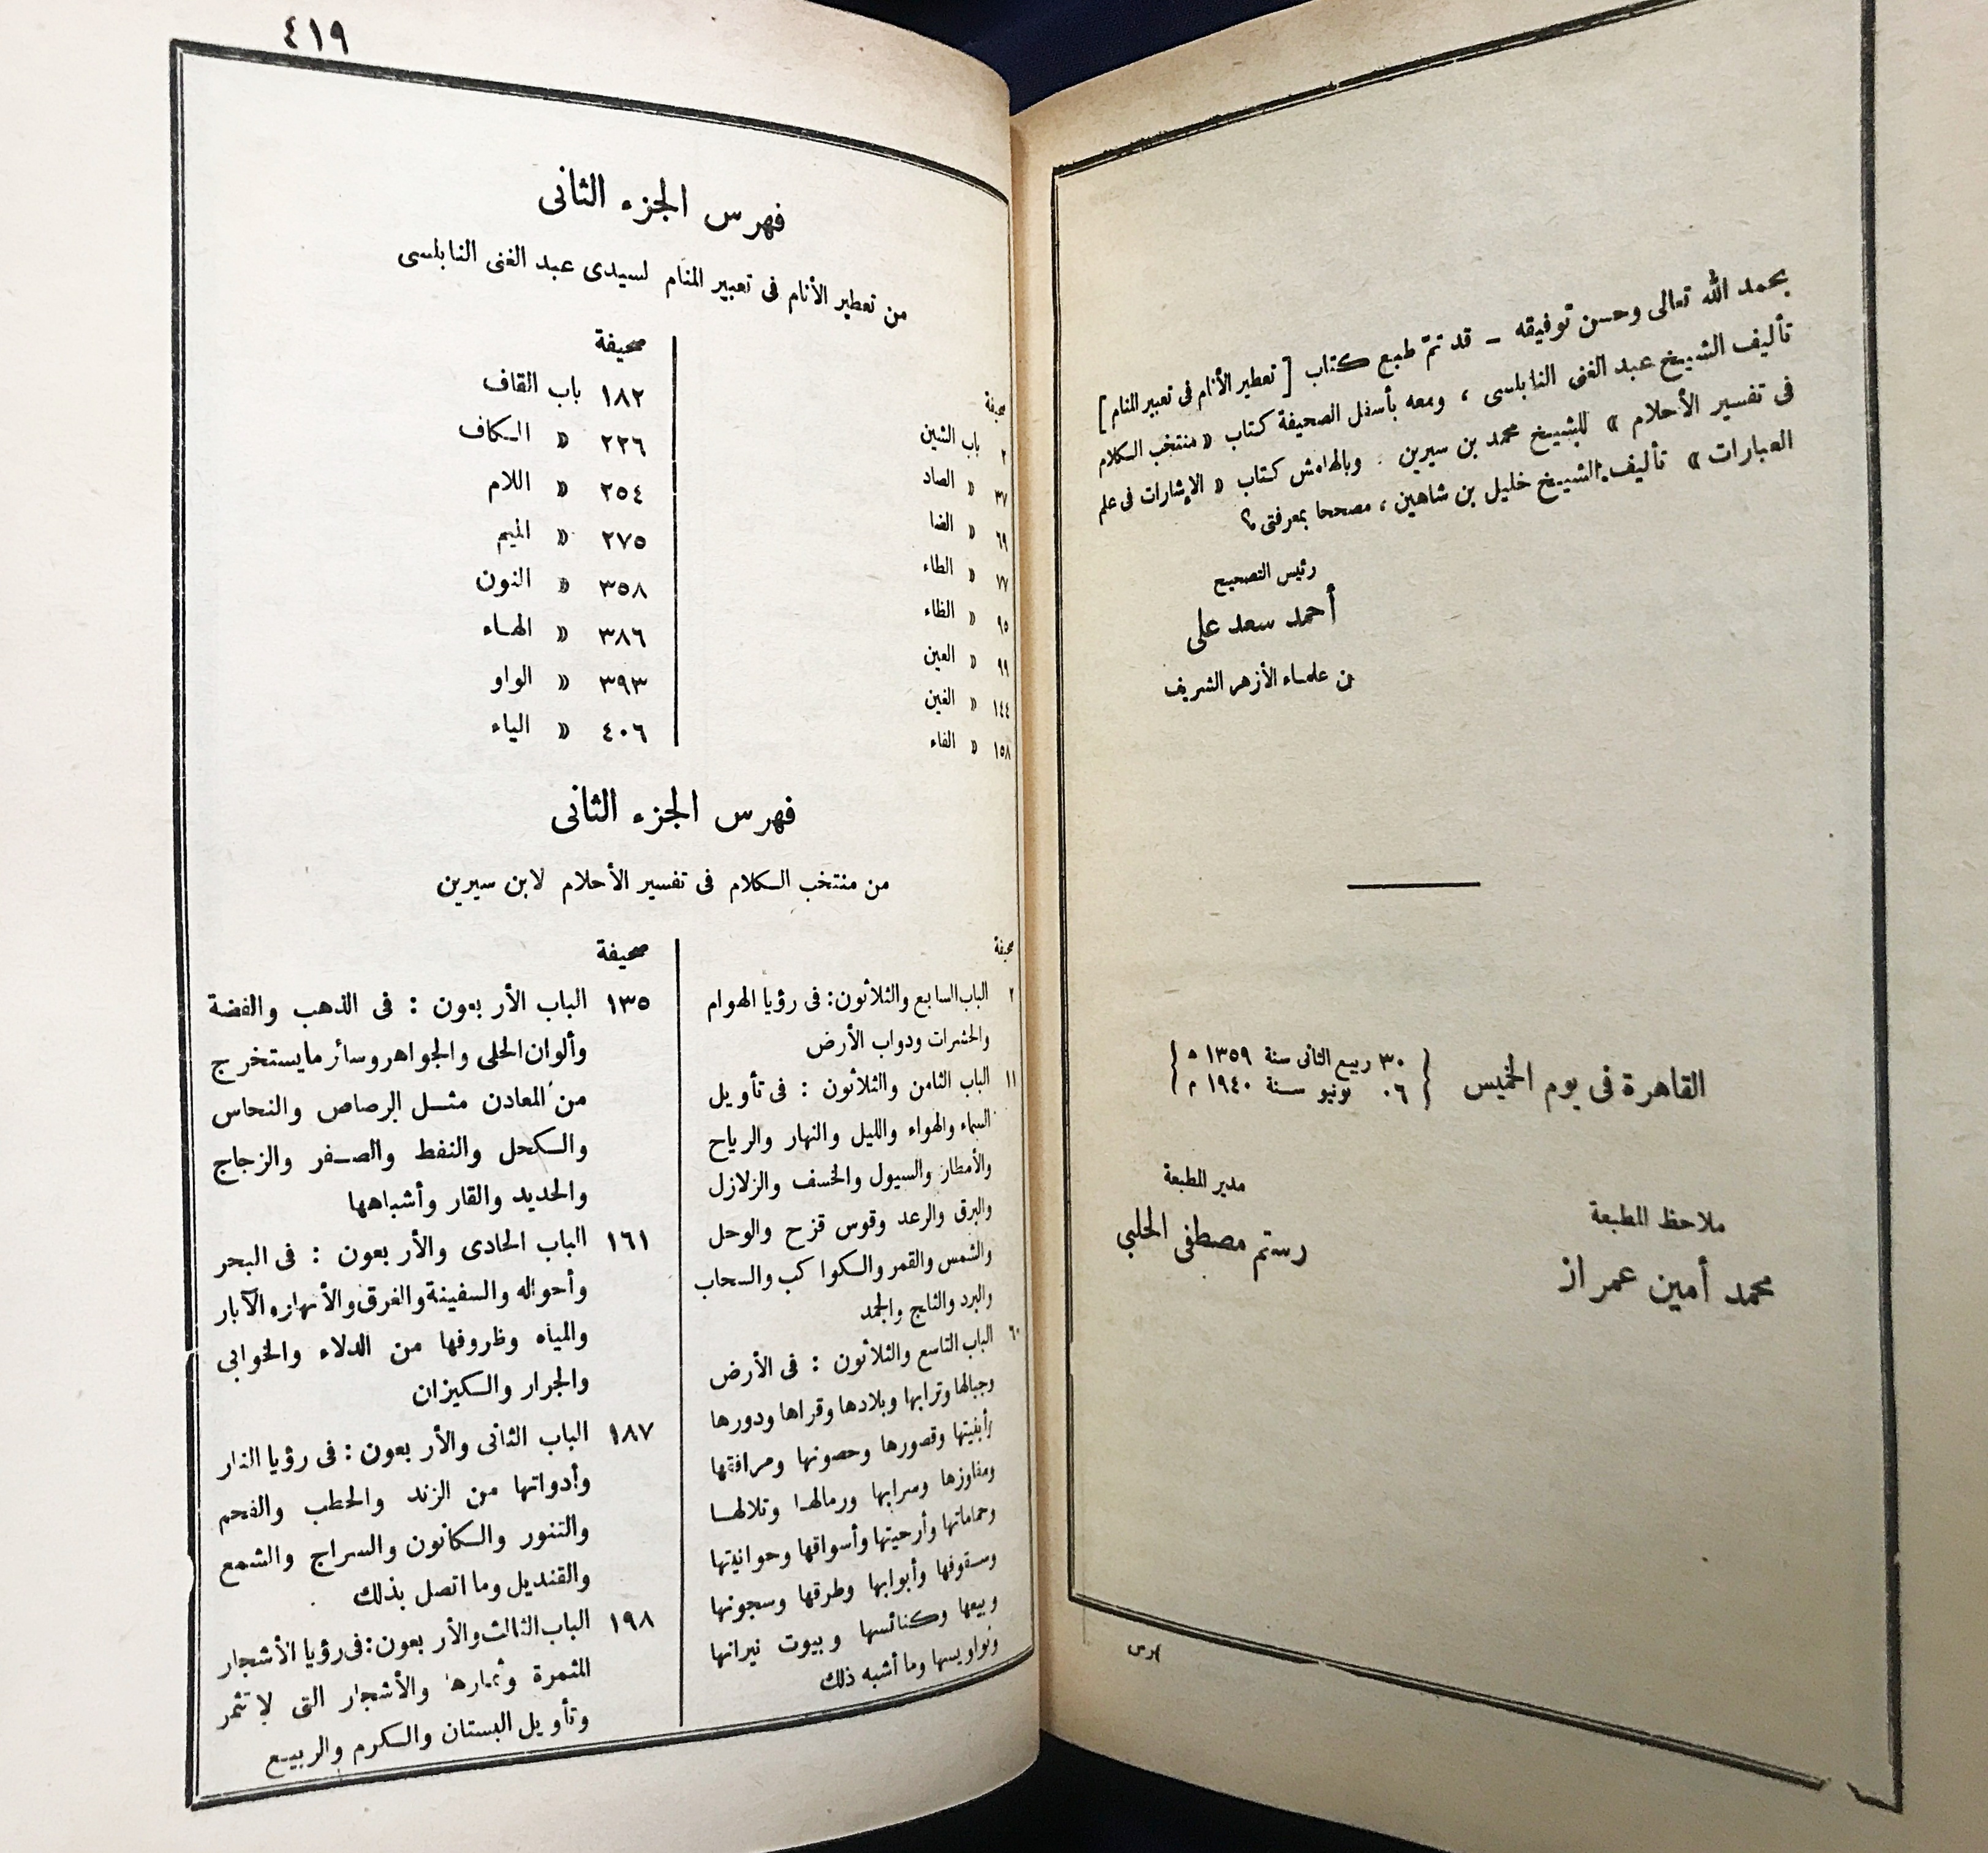 بحمد الله تعالى وحسن توفيقه — قد تمّ طبع كتاب [ تعطير الأنام فى تعبير المنام ]
تأليف الشيخ عبد الغنى النابلسى ، ومعه بأسفل الصحيفة كتاب « منتخب الكلام
فى تفسير الأحلام » للشيخ محمد بن سيرين . وبالهامش كتاب « الإشارات فى علم
العبارات » تأليف الشيخ خليل بن شاهين ، مصححا بمعرفتى ؟
رئيس التصحيح
أحمد سعد على
من علماء الأزهر الشريف
القاهرة فى يوم الخميس
{ ٣٠ ربيع الثانى سنة ١٣٥٩ ه }
{ ٠٦ يونيو سنة ١٩٤٠ م }
ملاحظ المطبعة
محمد أمين عمران
مدير المطبعة
رستم مصطفى الحلبي
٤١٩
فهرس الجزء الثانى
من تعطير الأنام فى تعبير المنام لسيدى عبد الغنى النابلسى
صحيفة
٢ باب الشين
٣٧ » الصاد
٦٩ » الضا
٧٧ » الطاء
٩٥ » الظاء
٩٩ » العين
١٤٤ » الغين
١٥٨ » الفاء
صحيفة
١٨٢ باب القاف
٢٣٦ » الكاف
٢٥٤ » اللام
٢٧٥ » الميم
٣٥٨ » النون
٣٨٦ » الهاء
٣٩٣ » الواو
٤٠٦ » الياء
فهرس الجزء الثانى
من منتخب الكلام فى تفسير الأحلام لابن سيرين
صحيفة
٢ الباب السابع والثلاثون : فى رؤيا الهوام
والحشرات ودواب الأرض
١١ الباب الثامن والثلاثون : فى تأويل
السماء والهواء والليل والنهار والرياح
والأمطار والسيول والخسف والزلازل
والبرق والرعد وقوس قزح والوحل
والشمس والقمر والكواكب والسحاب
والبرد والثلج والجمد
٦٠ الباب التاسع والثلاثون : فى الأرض
وجبالها وترابها وبلادها وقراها ودورها
وأبنيتها وقصورها وحصونها ومرافقها
ومفاوزها وسرابها ورمالها وتلالها
وحماماتها وأرحيتها وأسواقها وحوانيتها
وسقوفها وأبوابها وطرقها وسجونها
وبيعها وكنائسها وبيوت نيرانها
ونواويسها وما أشبه ذلك
صحيفة
١٣٥ الباب الأربعون : فى الذهب والفضة
وألوان الحلى والجواهر وسائر مايستخرج
من المعادن مثل الرصاص والنحاس
والكحل والنفط والصفر والزجاج
والحديد والقار وأشباهها
١٦١ الباب الحادى والأربعون : فى البحر
وأحواله والسفينة والغرق والأنهار والآبار
والمياه وظروفها من الدلاء والخوابى
والجرار والكيزان
١٨٧ الباب الثانى والأربعون : فى رؤيا النار
وأدواتها من الزند والحطب والفحم
والتنور والكانون والسراج والشمع
والقنديل وما اتصل بذلك
١٩٨ الباب الثالث والأربعون : فى رؤيا الأشجار
المثمرة وثمارها والأشجار التى لا تثمر
وتأويل البستان والكرم والربيع